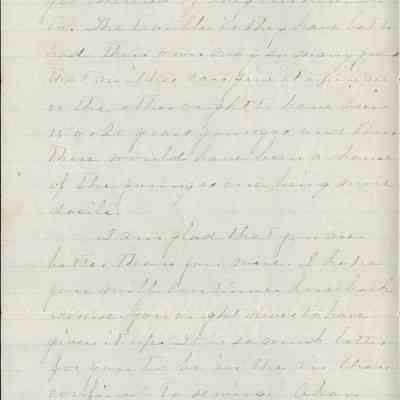 in. The trouble is they have both
had their own way so many years
that neither can give it up. One
or the other ought to have been
15 or 20 years younger and then
there would have been a chance
of the younger one being more
docile.
I am glad that you are
better than you were. I hope
you will continue horseback
exercise. You ought never to have
given it up. It is so much better
for you to be in the air than
confined to sewing.